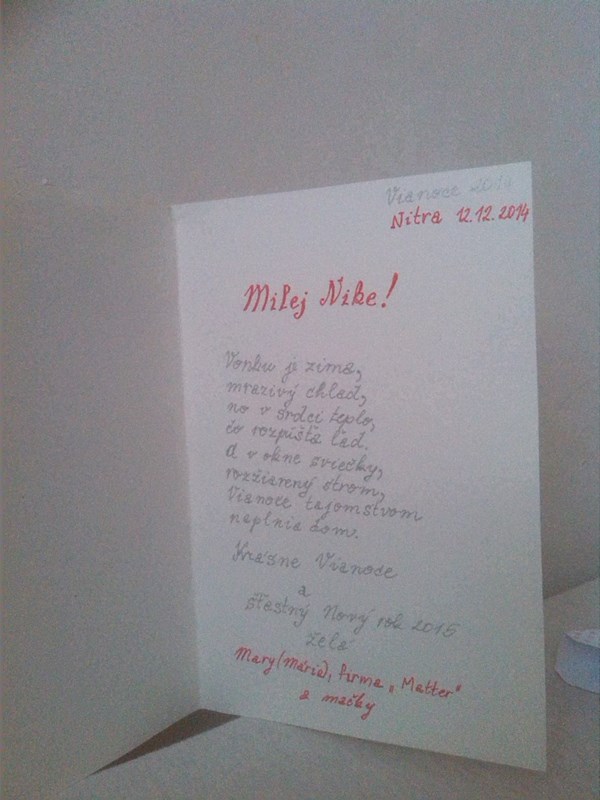 Vianoce 2014
Nitra 12.12.2014
Milej Nike!
Vonku je zima,
mrazivý chlad,
no v srdci teplo,
čo rozpúšťa ľad.
A v okne sviečky,
rozžiarený strom,
Vianoce tajomstvom
naplnia dom.
Krásne Vianoce
a
šťastný Nový rok 2015
želá
Mary (Mária), firma „Matter"
a mačky